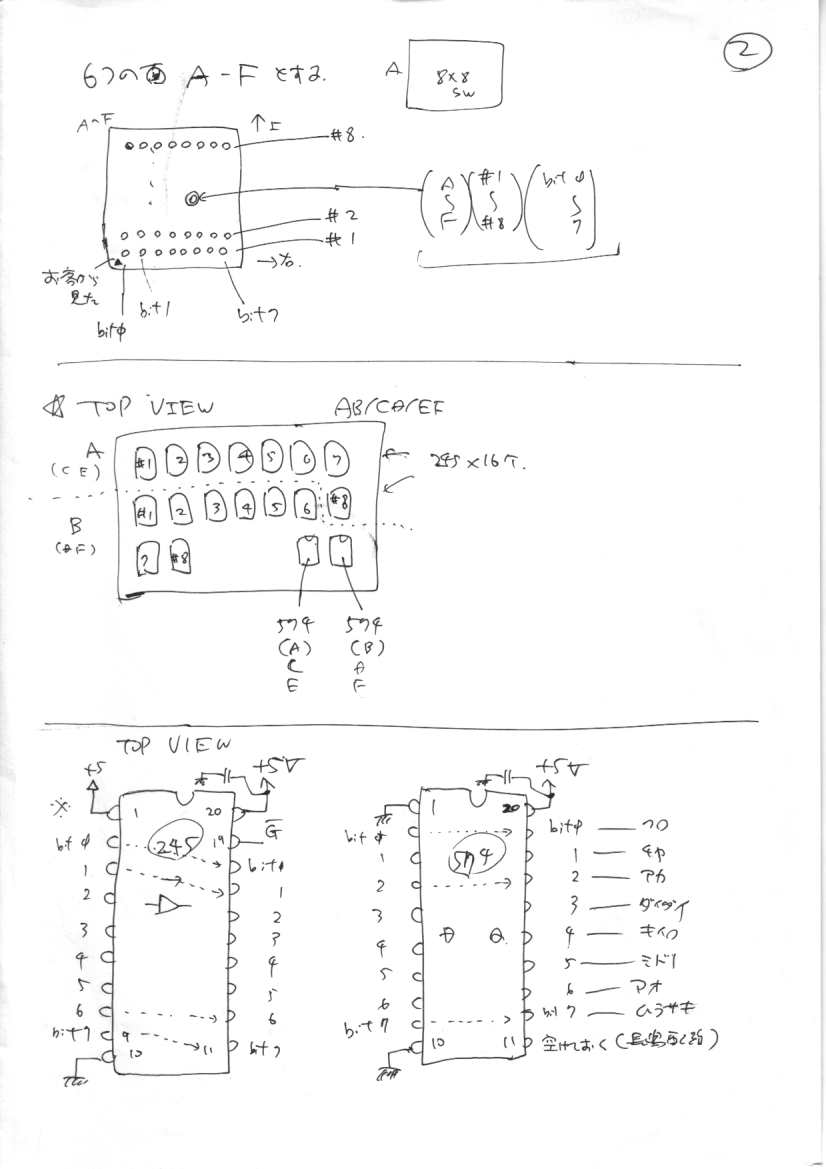 2
6つの面 A-Fとする.
A
8×8
SW
A~F
↑上
#8.
#2
#1
→右.
A
〜
F
#1
〜
#8
bitφ
〜
7
お客から
見た
bitφ
bit1
bit7
TOP VIEW
AB/CD/EF
A
(C E)
#1 2 3 4 5 6 7
245×16ケ.
B
(D F)
#1 2 3 4 5 6 #8
7 #8
574
(A)
C
E
574
(B)
D
F
TOP VIEW
+5
+5V
※
1
20
245
19
G
bitφ
bitφ
1
1
2
2
3
3
4
4
5
5
6
6
bit7
9
10
11
bit7
+5V
1
20
574
bitφ
bitφ クロ
1
1 チャ
2
2 アカ
3
3 ダイダイ
4
4 キイロ
D Q
5
5 ミドリ
6
6 アオ
bit7
bit7 ムラサキ
10
11
空けておく